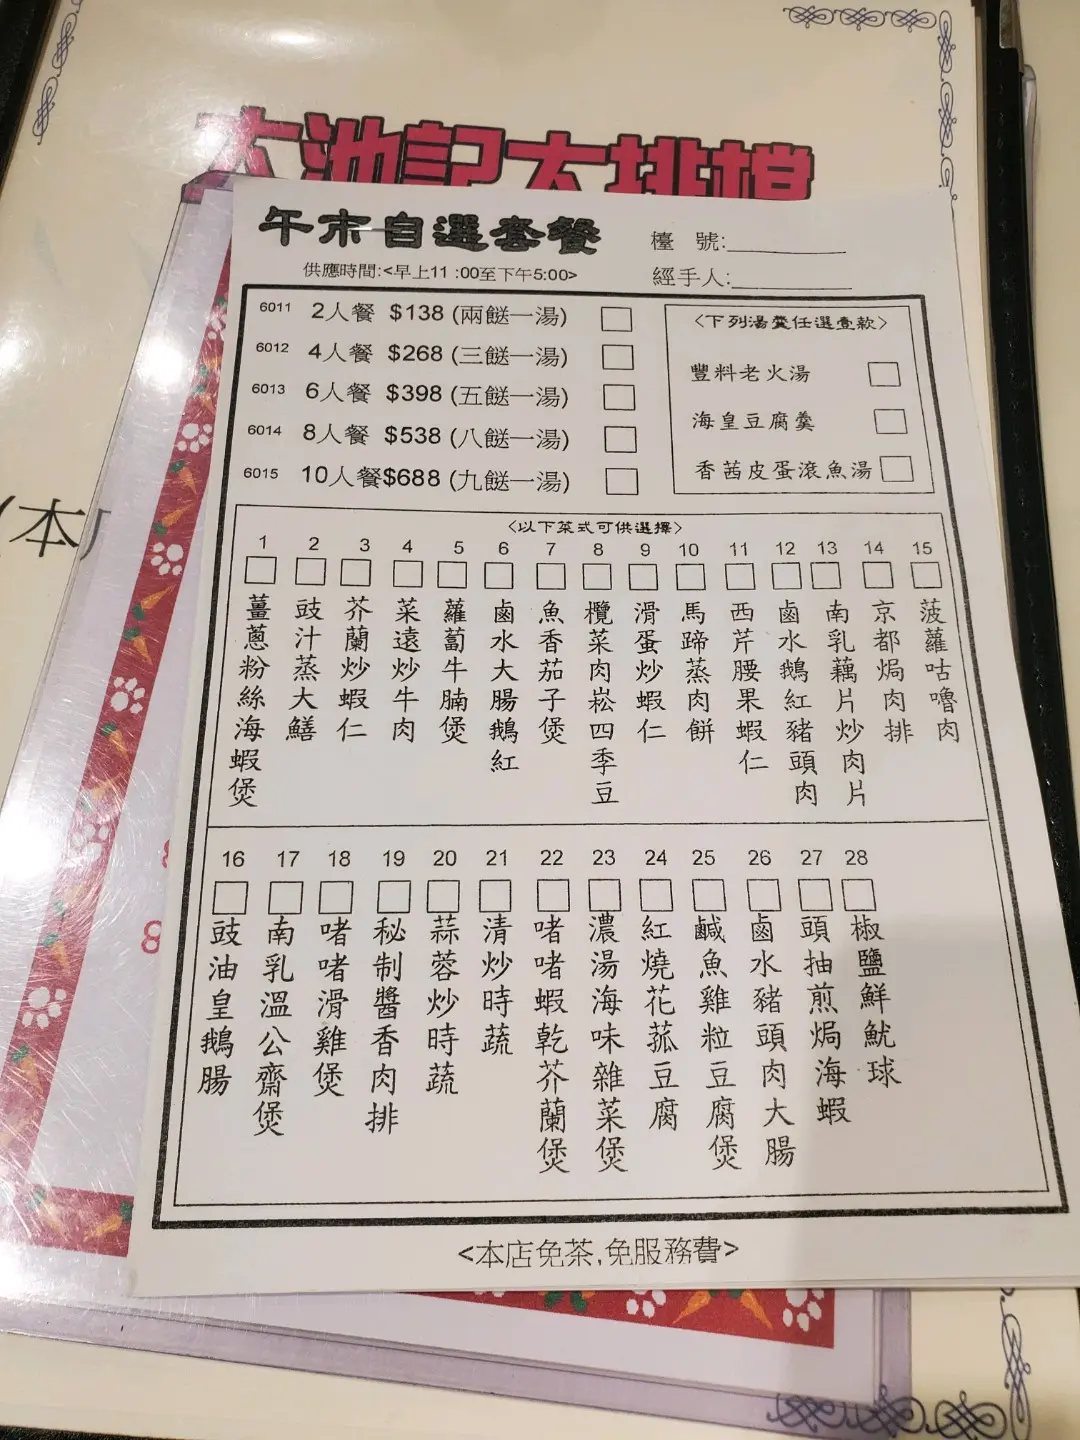 大池記大排檔
午市自選套餐
檯 號:
供應時間:<早上11 :00至下午5:00>
經手人:
6011 2人餐 $138 (兩餸一湯)
6012 4人餐 $268 (三餸一湯)
6013 6人餐 $398 (五餸一湯)
6014 8人餐 $538 (八餸一湯)
6015 10人餐$688 (九餸一湯)
<下列湯羹任選壹款>
豐料老火湯
海皇豆腐羹
香茜皮蛋滾魚湯
<以下菜式可供選擇>
1 薑蔥粉絲海蝦煲
2 豉汁蒸大鱔
3 芥蘭炒蝦仁
4 菜遠炒牛肉
5 蘿蔔牛腩煲
6 鹵水大腸鵝紅
7 魚香茄子煲
8 欖菜肉崧四季豆
9 滑蛋炒蝦仁
10 馬蹄蒸肉餅
11 西芹腰果蝦仁
12 鹵水鵝紅豬頭肉
13 南乳藕片炒肉片
14 京都焗肉排
15 菠蘿咕嚕肉
16 豉油皇鵝腸
17 南乳溫公齋煲
18 啫啫滑雞煲
19 秘制醬香肉排
20 蒜蓉炒時蔬
21 清炒時蔬
22 啫啫蝦乾芥蘭煲
23 濃湯海味雜菜煲
24 紅燒花菰豆腐
25 鹹魚雞粒豆腐煲
26 鹵水豬頭肉大腸
27 頭抽煎焗海蝦
28 椒鹽鮮魷球
<本店免茶,免服務費>
(本
8
8